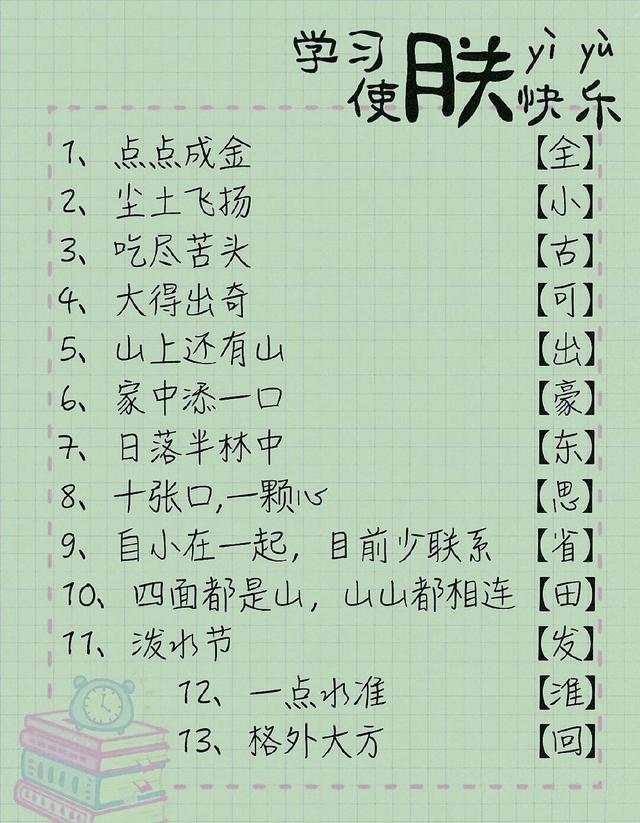 学习 yì yù
使朕快乐
1、点点成金 【全】
2、尘土飞扬 【小】
3、吃尽苦头 【古】
4、大得出奇 【可】
5、山上还有山 【出】
6、家中添一口 【豪】
7、日落半林中 【东】
8、十张口,一颗心 【思】
9、自小在一起，目前少联系 【省】
10、四面都是山，山山都相连 【田】
11、泼水节 【发】
12、一点水准 【淮】
13、格外大方 【回】